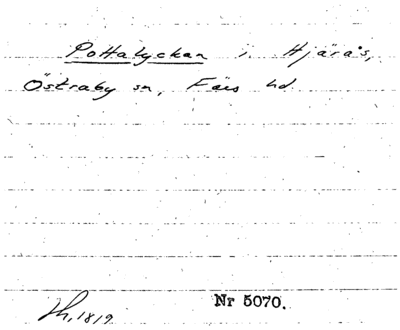 Pottalyckan i Hjärås,
Östraby sn, Färs hd.
Nr 5070.
Lh, 1819